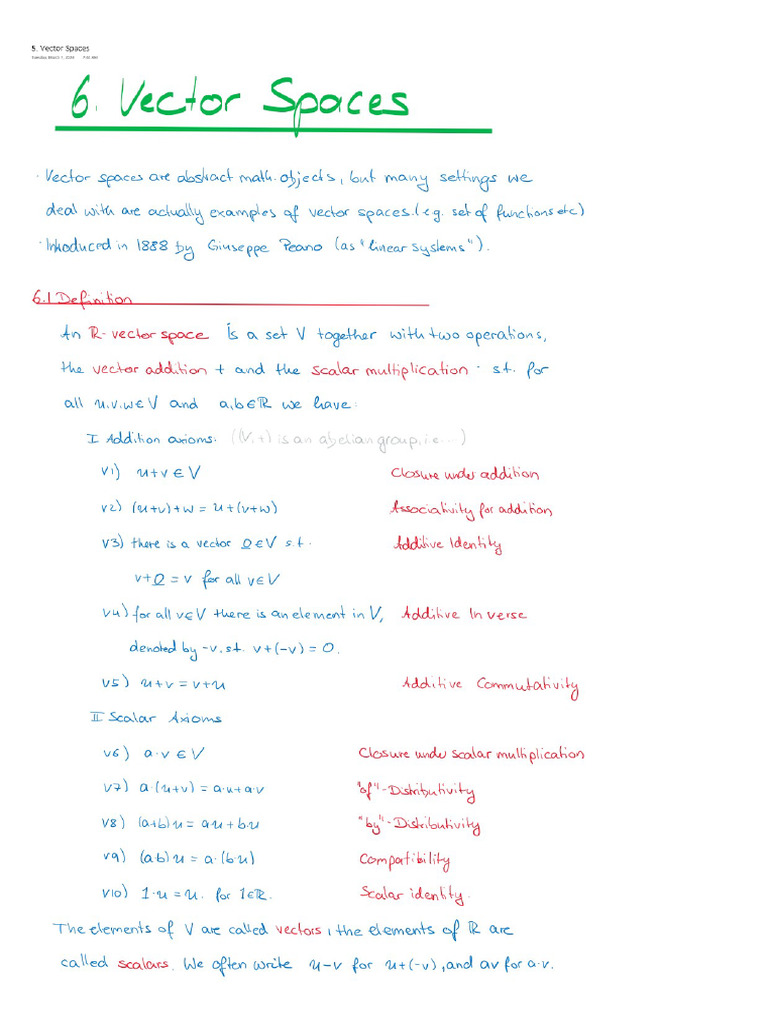 5. Vector Spaces
6. Vector Spaces
· Vector spaces are abstract math. objects, but many settings we
deal with are actually examples of vector spaces. (e.g. set of functions etc)
· Introduced in 1888 by Giuseppe Peano (as "linear systems").
6.1 Definition
An ℝ-vector space is a set V together with two operations,
the vector addition + and the scalar multiplication · s.t. for
all u,v,w ∈ V and a,b ∈ ℝ we have:
I Addition axioms. ((V,+) is an abelian group, i.e....)
V1) u+v ∈ V Closure under addition
V2) (u+v)+w = u+(v+w) Associativity for addition
V3) there is a vector 0 ∈ V s.t. Additive Identity
v+0 = v for all v ∈ V
V4) for all v ∈ V there is an element in V, Additive Inverse
denoted by -v, s.t. v+(-v) = 0.
V5) u+v = v+u Additive Commutativity
II Scalar Axioms
V6) a·v ∈ V Closure under scalar multiplication
V7) a·(u+v) = a·u+a·v "of"-Distributivity
V8) (a+b)u = a·u+b·u "by"-Distributivity
V9) (a·b)u = a·(b·u) Compatibility
V10) 1·u = u. for 1 ∈ ℝ. Scalar identity.
The elements of V are called vectors, the elements of ℝ are
called scalars. We often write u-v for u+(-v), and av for a·v.